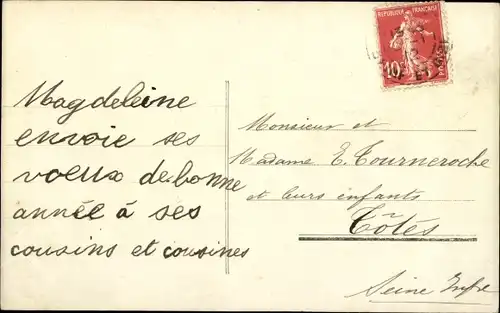 Magdeleine
envoie ses
voeux de bonne
année à ses
cousins et cousines
REPUBLIQUE FRANÇAISE
10
Monsieur et
Madame E. Tourneroche
et leurs infants
Tôtes
Seine Infre